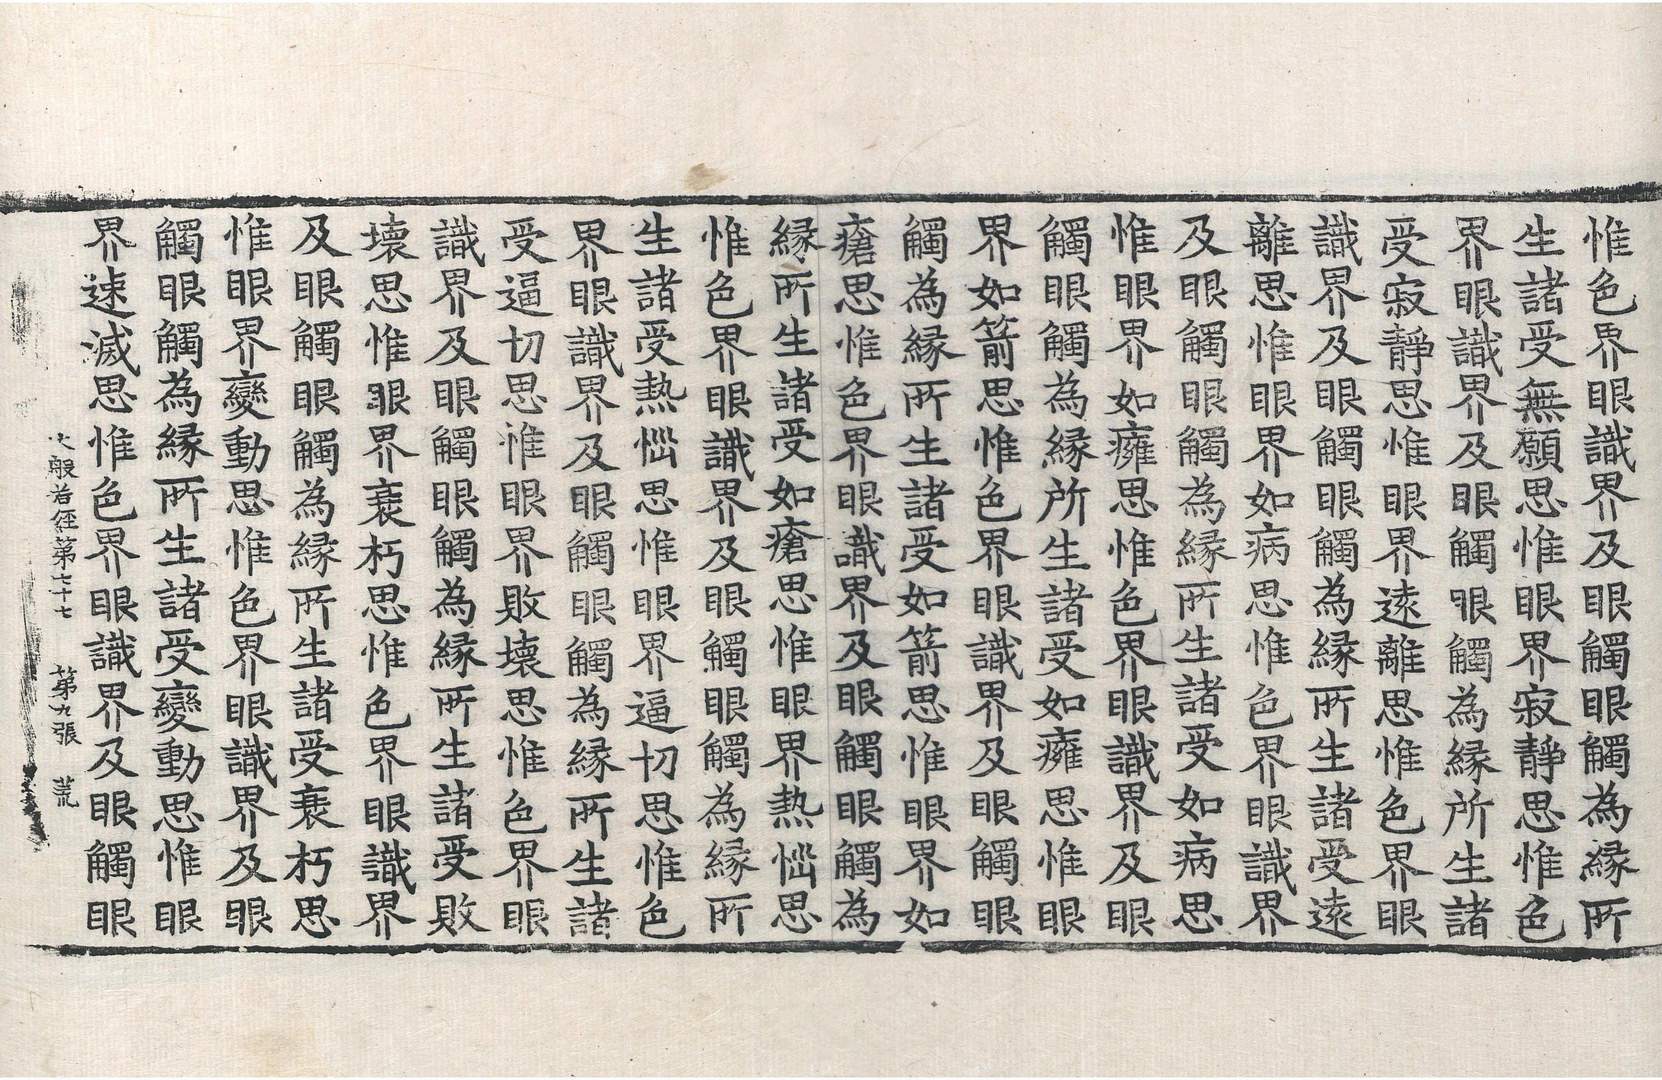 惟色界眼識界及眼觸眼觸為縁所
生諸受無願思惟眼界寂靜思惟色
界眼識界及眼觸眼觸為縁所生諸
受寂靜思惟眼界遠離思惟色界眼
識界及眼觸眼觸為縁所生諸受遠
離思惟眼界如病思惟色界眼識界
及眼觸眼觸為縁所生諸受如病思
惟眼界如癰思惟色界眼識界及眼
觸眼觸為縁所生諸受如癰思惟眼
界如箭思惟色界眼識界及眼觸眼
觸為縁所生諸受如箭思惟眼界如
瘡思惟色界眼識界及眼觸眼觸為
縁所生諸受如瘡思惟眼界熱惱思
惟色界眼識界及眼觸眼觸為縁所
生諸受熱惱思惟眼界逼切思惟色
界眼識界及眼觸眼觸為縁所生諸
受逼切思惟眼界敗壞思惟色界眼
識界及眼觸眼觸為縁所生諸受敗
壞思惟眼界衰朽思惟色界眼識界
及眼觸眼觸為縁所生諸受衰朽思
惟眼界變動思惟色界眼識界及眼
觸眼觸為縁所生諸受變動思惟眼
界速滅思惟色界眼識界及眼觸眼
大般若經第七十七 第九張 荒